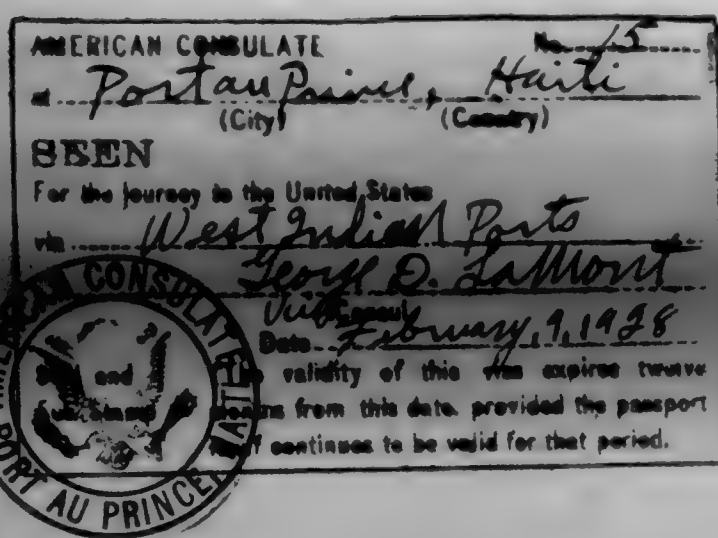 AMERICAN CONSULATE No. 15
at Port au Prince, Haiti
(City) (Country)
SEEN
For the journey to the United States
via West Indian Ports
George D. LaMont
Vice Consul
Date February, 9, 1928
and validity of this visa expires twelve
from this date. provided the passport
continues to be valid for that period.
AMERICAN CONSULATE
PORT AU PRINCE, HAITI